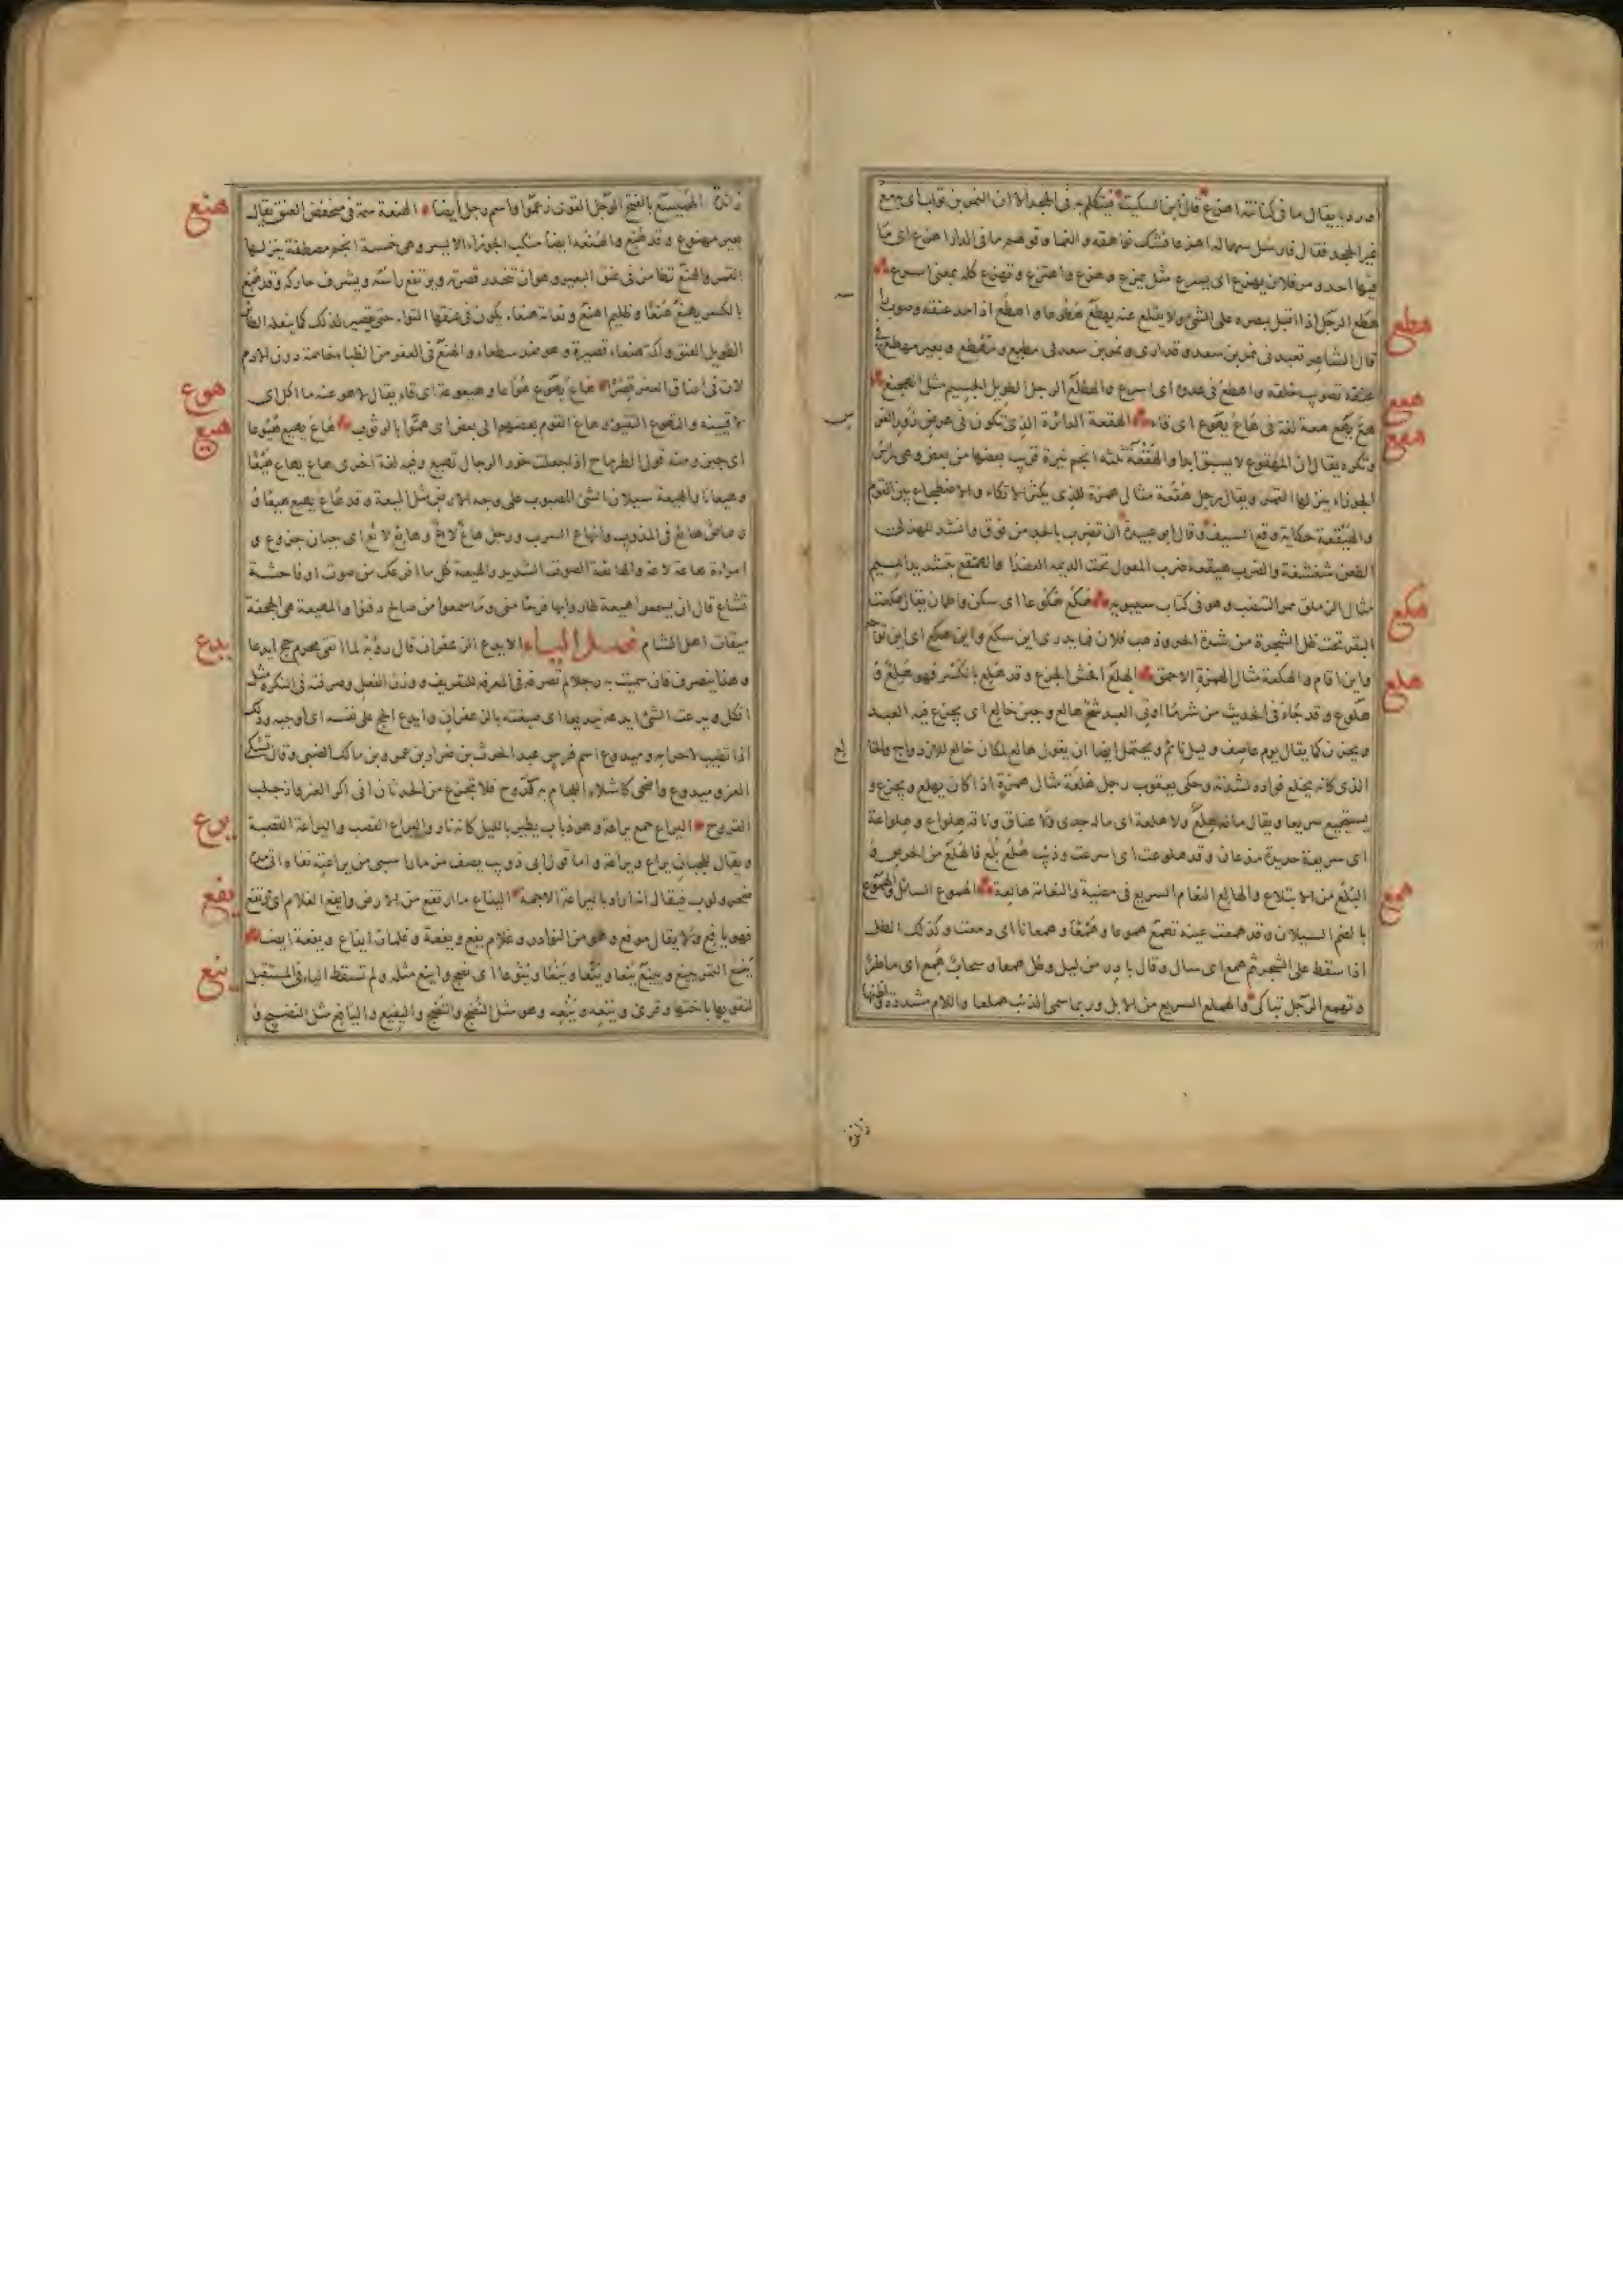 احد ويقال ما فى كنانته اهزع قال ابن السكيت فيتكلم به فى الجحد الا ان النمر بن تولب اتى به مع
غير الجحد فقال فارسل سهما له اهزعا فشك نواهقه والفما وقولهم ما فى الدار اهزع اى ما
فيها احد ومر فلان يهزع اى يسرع مثل يمزع وهزع واهتزع وتهزع كله بمعنى اسرع
هطع
هطع الرجل اذا اقبل ببصره على الشئ ولا يقلع عنه يهطع هطوعا واهطع اذا مد عنقه وصوب را
قال الشاعر تعبدنى نمر بن سعد وقد ارى ونمر بن سعد لى مطيع ومهطع وبعير مهطع فى
عنقه تصويب خلقة واهطع فى عدوه اى اسرع والهطلع الرجل الطويل الجسيم مثل الهجنع
هعع
هع يهع هعة لغة فى هاع يهوع اى قاء
هقع
الهقعة الدائرة التى تكون فى عرض زور الفر
وتكره يقال ان المهقوع لا يسبق ابدا والهقعة ثلثة انجم نيرة قريب بعضها من بعض وهى رأس
الجوزاء ينزلها القمر ويقال رجل هقعة مثال همزة للذى يكثر الاتكاء والاضطجاع بين القوم
والهيقعة حكاية وقع السيف وقال ابو عبيدة ان تضرب بالحد من فوق وانشد للهذلى
الطعن شغشغة والضرب هيقعة ضرب المعول تحت الديمه العضدا والهقع بتشديد الميم
مثال الزملق ثمر التنضب وهو فى كتاب سيبويه
هكع
هكع هكوعا اى سكن واطمان يقال هكعت
البقر تحت ظل الشجرة من شدة الحر وذهب فلان فما يدرى اين سكع واين هكع اى اين توجه
واين اقام والهكعة مثال الهمزة الاحمق
هلع
الهلع افحش الجزع وقد هلع بالكسر فهو هلع و
هلوع وقد جاء فى الحديث من شر ما اوتى العبد شح هالع وجبن خالع اى يجزع فيه العبد
ويحزن كما يقال يوم عاصف وليل نائم ويحتمل ايضا ان يقول هالع لمكان خالع للازدواج والخا
لع
الذى كانه يخلع فواده لشدته وحكى يعقوب رجل هلعة مثال همزة اذا كان يهلع ويجزع و
يستجيع سريعا ويقال ماله هلع ولا هلعة اى ماله جدى ولا عناق وناقه هلواع وهلواعة
اى سريعة حديدة مذعان وقد هلوعت اى اسرعت وذئب هلع بلع فالهلع من الحرص و
البلع من الابتلاع والهالع النعام السريع فى مضيه والنعامة هالعة
همع
الهموع السائل والهموع
بالضم السيلان وقد همعت عينه تهمع هموعا وهمعا وهمعانا اى دمعت وكذلك الطل
اذا سقط على الشجر ثم همع اى سال وقال بادر من ليل وطل همعا وسحاب همع اى ماطر
وتهمع الرجل تباكى والهملع السريع من الابل وربما سمى الذئب هملعا واللام مشددة واظنها
زائدة
زائدة الهميسع بالفتح الرجل القوى زعموا واسم رجل ايضا
هنع
الهنعة سمة فى منخفض العنق يقال
بعير مهنوع وقد هنع والهنعه ايضا منكب الجوزاء الايسر وهى خمسة انجم مصطفة ينزلها
القمر والهنع تطامن فى عنق البعير وهو ان تنحدر قصرته ويرتفع راسه ويشرف حاركه وقد هنع
بالكسر يهنع هنعا وظليم اهنع ونعامة هنعاء يكون فى عنقها التواء حتى تقصر لذلك كما يفعله الطائر
الطويل العنق واكمة هنعاء قصيرة وهو ضد سطعاء والهنع فى العفر من الظباء خاصة دون الادم
لان فى اعناق العفر قصرا
هوع
هاع يهوع هواعا وهيعوعة اى قاء يقال لاهوعنه ما اكل اى
لاقيينه والتهوع التقيؤ وهاع القوم بعضهم الى بعض اى هموا بالوثوب
هيع
هاع يهيع هيوعا
اى جبن ومنه قول الطرماح اذا جعلت خور الرجال تهيع وفيه لغة اخرى هاع يهاع هيعا
وهيعانا والهيعة سيلان الشئ المصبوب على وجه الارض مثل الميعة وقد هاع يهيع هيعا و
رصاص هائع فى المذوب وانهاع السراب ورجل هاع لاع وهائع لائع اى جبان جزوع و
امراة هاعة لاعة والهائعة الصوت الشديد والهيعة كل ما افزعك من صوت او فاحشة
تشاع قال ان يسمعوا هيعة طاروا بها فرحا منى وما سمعوا من صالح دفنوا والمهيعة هى الجحفة
ميقات اهل الشام فصل الياء
يدع
الايدع الزعفران قال رؤبة لما اتقى محرم حج ايدعا
وهذا ينصرف فان سميت به رجلا لم تصرفه فى المعرفه للتعريف ووزن الفعل وصرفته فى النكرة مثل
افكل ويدعت الشئ ايدعه تيديعا اى صبغته بالزعفران وايدع الحج على نفسه اى اوجبه وذلك
اذا تطيب لاحرامه وميدوع اسم فرس عبد الحرث بن ضرار بن عمرو بن مالك الضبى وقال تشكى
الغزو ميدوع واضحى كاشلاء اللجام به كدوح فلا تجزع من الحدثان انى اكر الغزو اذ جلب
القروح
يرع
اليراع جمع يراعة وهو ذباب يطير بالليل كانه نار واليراع القصب واليراعة القصبة
ويقال للجبان يراع ويراعة واما قول ابى ذويب يصف مزمارا سبى من يراعته نفاه اتى مده
صحر ولوب فيقال انه اراد باليراعة الاجمة
يفع
اليفاع ما ارتفع من الارض وايفع الغلام اى ارتفع
فهو يافع ولا يقال موفع وهو من النوادر وغلام يفع ويفعة وغلمان ايفاع ويفعة ايضا
ينع
ينع الثمر يينع ويينع ينعا وينعا وينوعا اى نضج واينع مثله ولم تسقط الياء فى المستقبل
لتقويها باختها وقرئ وينعه وينعه وهو مثل النضج والنضج والينيع واليانع مثل النضيج و